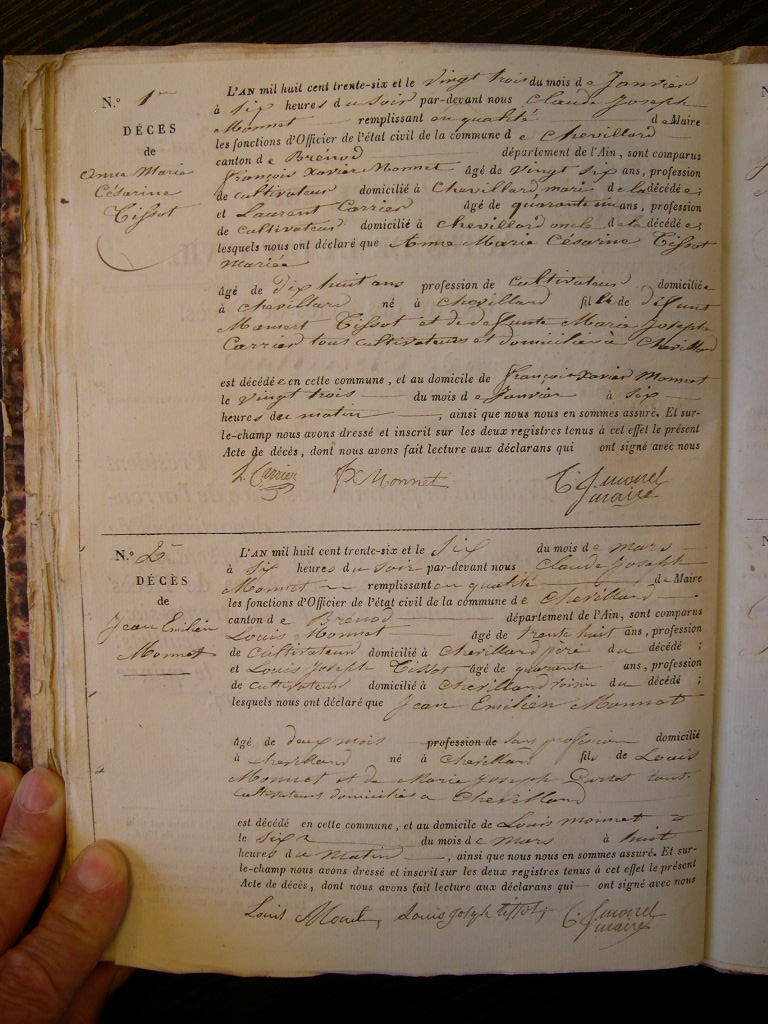 N.° 1er
DÉCÈS
de
Anne Marie
Césarine
Tissot
L'AN mil huit cent trente-six et le vingt trois du mois de Janvier
à six heures du soir par-devant nous Claude Joseph
Monnet remplissant en qualité de Maire
les fonctions d'Officier de l'état civil de la commune de Chevillard
canton de Brénod département de l'Ain, sont comparus
françois Xavier Monnet âgé de vingt six ans, profession
de cultivateur domicilié à Chevillard mari de la décédée;
et Laurent Carrier âgé de quarante un ans, profession
de cultivateur domicilié à chevillard oncle de la décédée;
lesquels nous ont déclaré que Anne Marie Césarine Tissot
Mariée
âgé de dix huit ans profession de Cultivateur domiciliée
à chevillard né à chevillard fille de défunt
Tissot et de defunte Marie Joseph
Carrier tous cultivateurs et domiciliés à Chevillard
est décédée en cette commune, et au domicile de françois Xavier Monnet
le vingt trois du mois de Janvier à six
heures du matin, ainsi que nous nous en sommes assuré. Et sur-
le-champ nous avons dressé et inscrit sur les deux registres tenus à cet effet le présent
Acte de décès, dont nous avons fait lecture aux déclarans qui ont signé avec nous
L. Carrier fX Monnet C. J. monet
maire
N.° 2e
DÉCÈS
de
Jean Emilien
Monnet
L'AN mil huit cent trente-six et le six du mois de mars
à six heures du soir par-devant nous Claude Joseph
Monnet remplissant en qualité de Maire
les fonctions d'Officier de l'état civil de la commune de Chevillard
canton de Brénod département de l'Ain, sont comparus
Louis Monnet âgé de trente huit ans, profession
de cultivateur domicilié à Chevillard père du décédé;
et Louis Joseph Tissot âgé de quarante ans, profession
de cultivateur domicilié à chevillard voisin du décédé;
lesquels nous ont déclaré que Jean Emilien Monnet
âgé de deux mois profession de sans profession domicilié
à chevillard né à Chevillard fils de Louis
Monnet et de Marie Joseph tous
cultivateurs domiciliés a Chevillard
est décédé en cette commune, et au domicile de Louis monnet
le six du mois de mars à huit
heures du matin, ainsi que nous nous en sommes assuré. Et sur-
le-champ nous avons dressé et inscrit sur les deux registres tenus à cet effet le présent
Acte de décès, dont nous avons fait lecture aux déclarans qui ont signé avec nous
Louis Monet, Louis joseph tissot, C. J. monet
maire